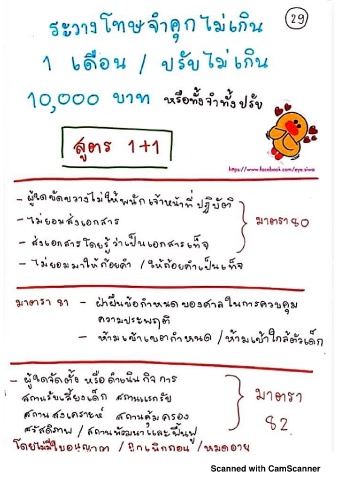 29
ระวางโทษจำคุกไม่เกิน
1 เดือน / ปรับไม่เกิน
10,000 บาท หรือทั้งจำทั้งปรับ
สูตร 1+1
https://www.facebook.com/eye.siwa
- ผู้ใดขัดขวางไม่ให้พนักเจ้าหน้าที่ปฏิบัติ
- ไม่ยอมส่งเอกสาร
- ส่งเอกสารโดยรู้ว่าเป็นเอกสารเท็จ
- ไม่ยอมมาให้ถ้อยคำ / ให้ถ้อยคำเป็นเท็จ
มาตรา 80
มาตรา 81 - ฝ่าฝืนข้อกำหนดของศาลในการควบคุม
ความประพฤติ
- ห้ามเข้าเขตกำหนด / ห้ามเข้าใกล้ตัวเด็ก
- ผู้ใดจัดตั้ง หรือดำเนินกิจการ
สถานรับเลี้ยงเด็ก สถานแรกรับ
สถานสงเคราะห์ สถานคุ้มครอง
สวัสดิภาพ / สถานพัฒนาและฟื้นฟู
โดยไม่มีใบอนุญาต / ถูกเพิกถอน / หมดอายุ
มาตรา
82
Scanned with CamScanner